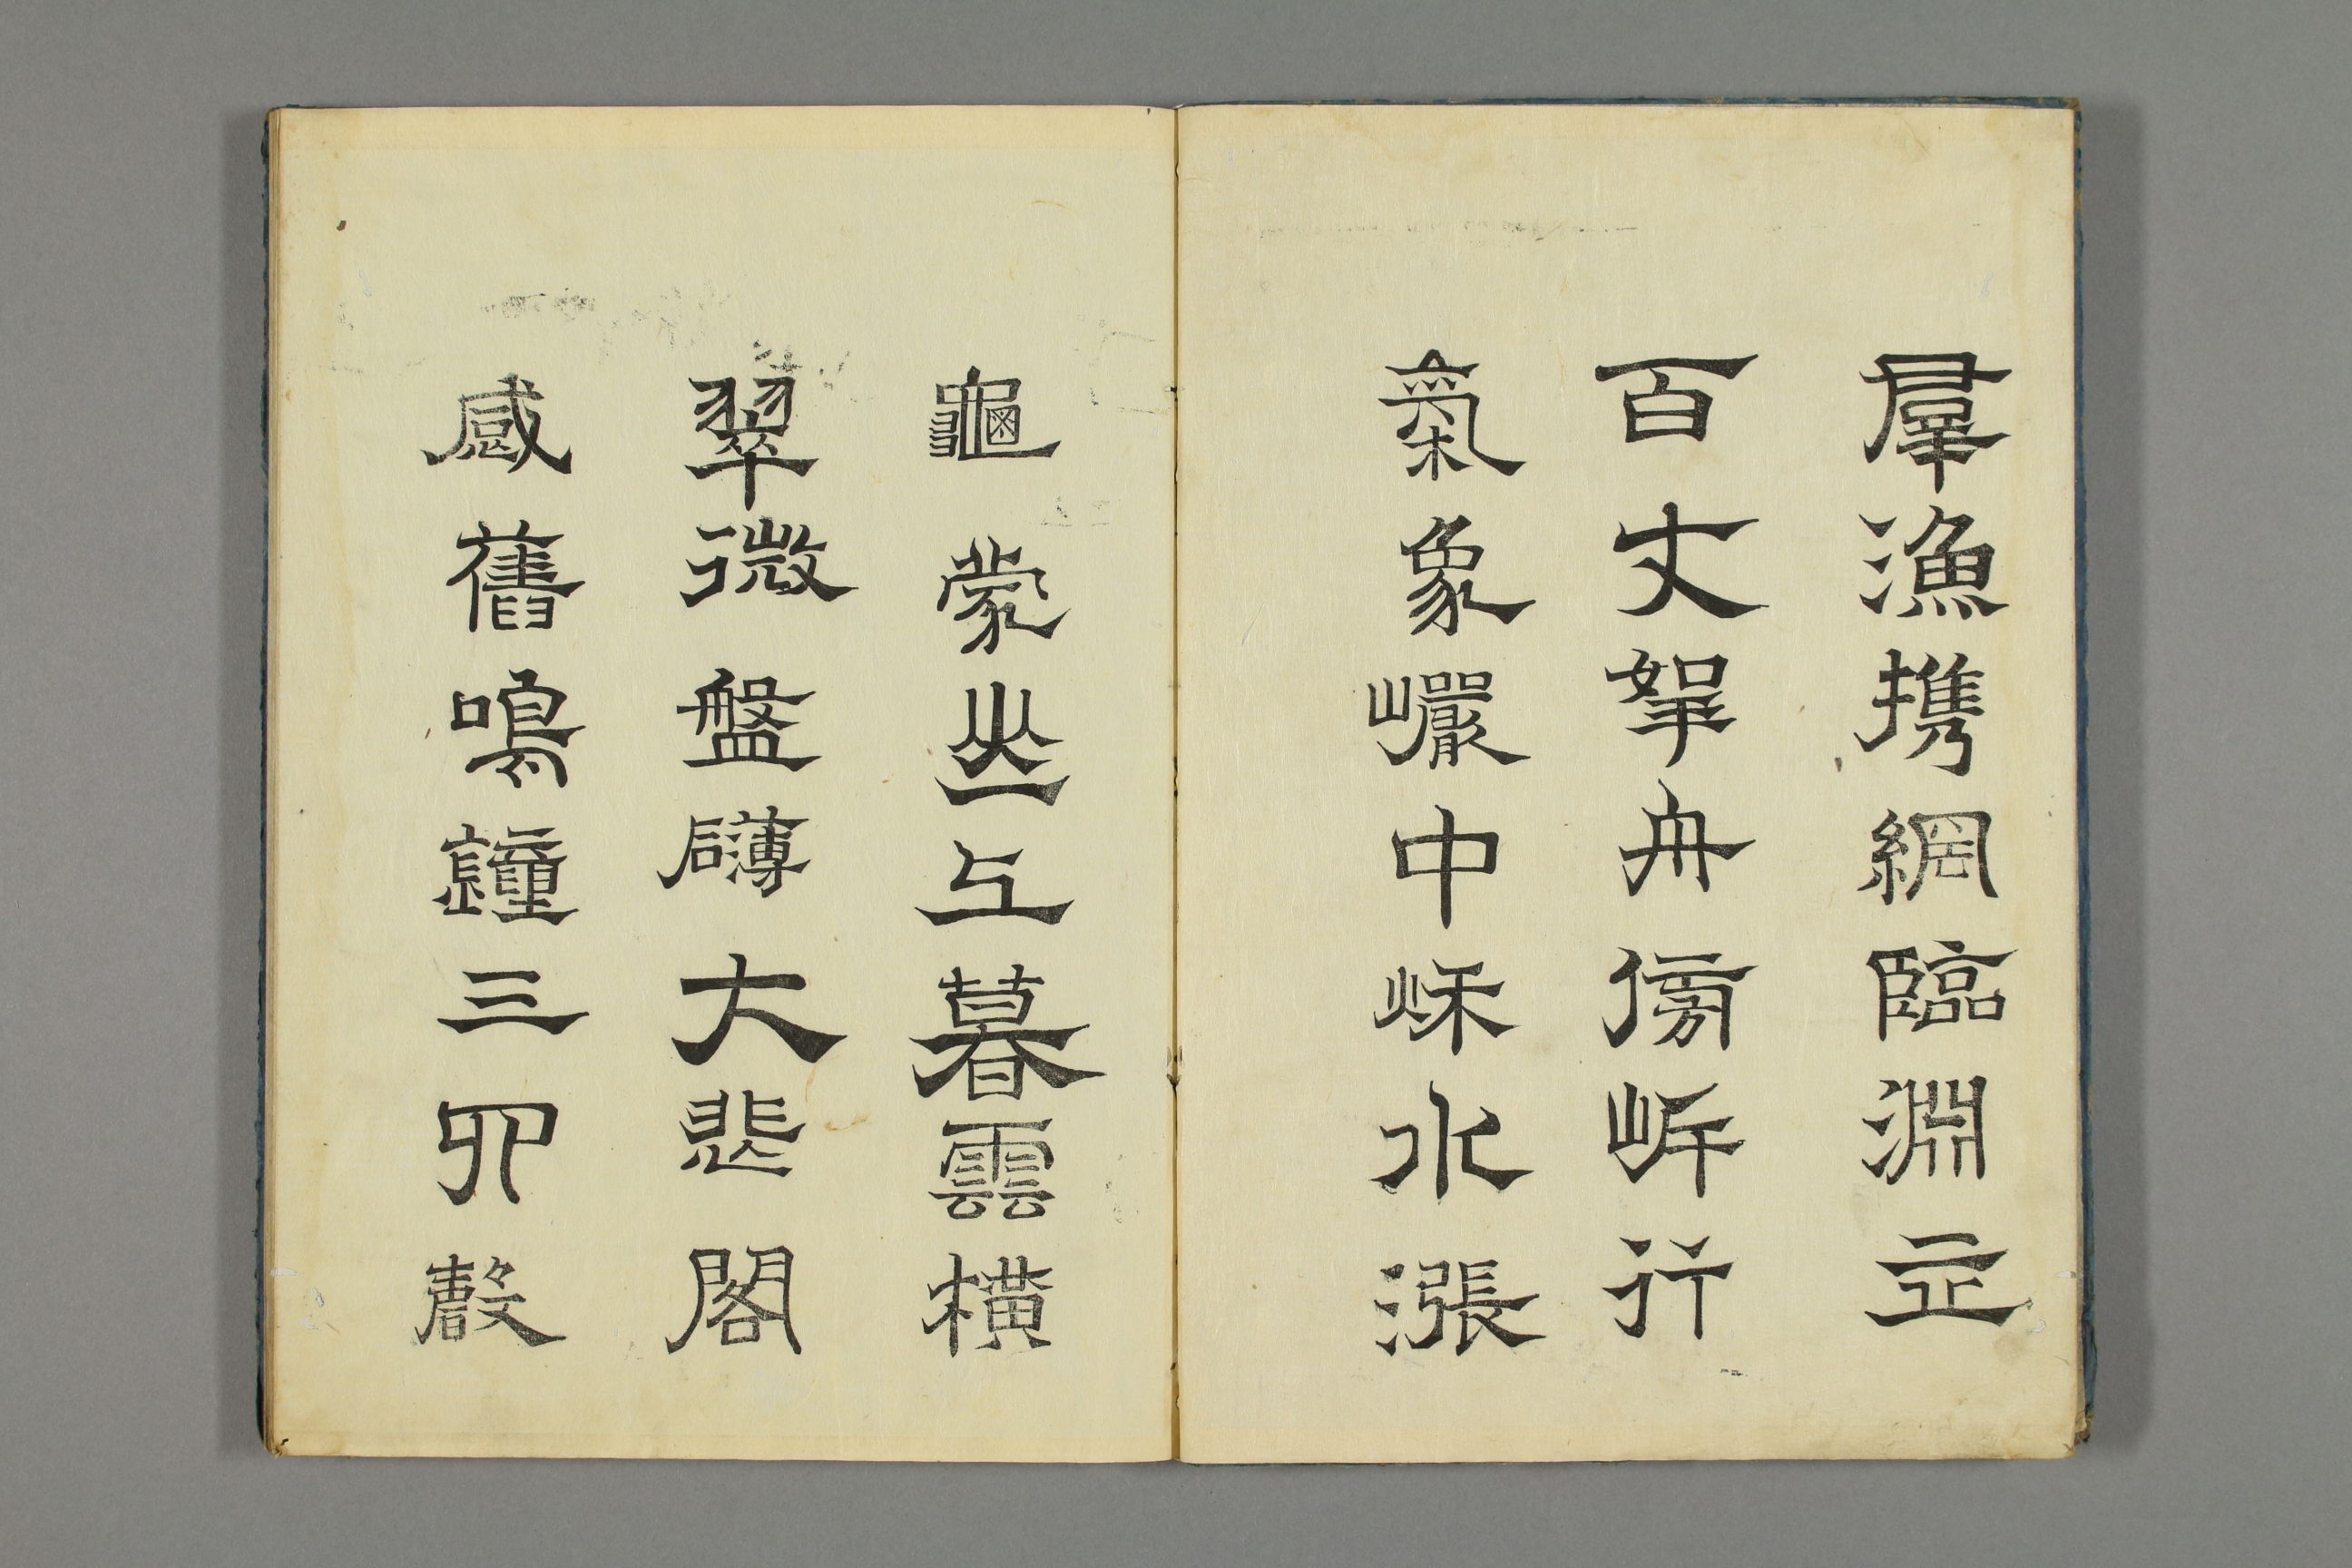 羣漁携網臨淵立
百丈拏舟傍岍行
氣象巖中秌水漲
龜蒙𠀌上暮雲橫
翠微盤礴大悲閣
感舊鳴鐘三四聲